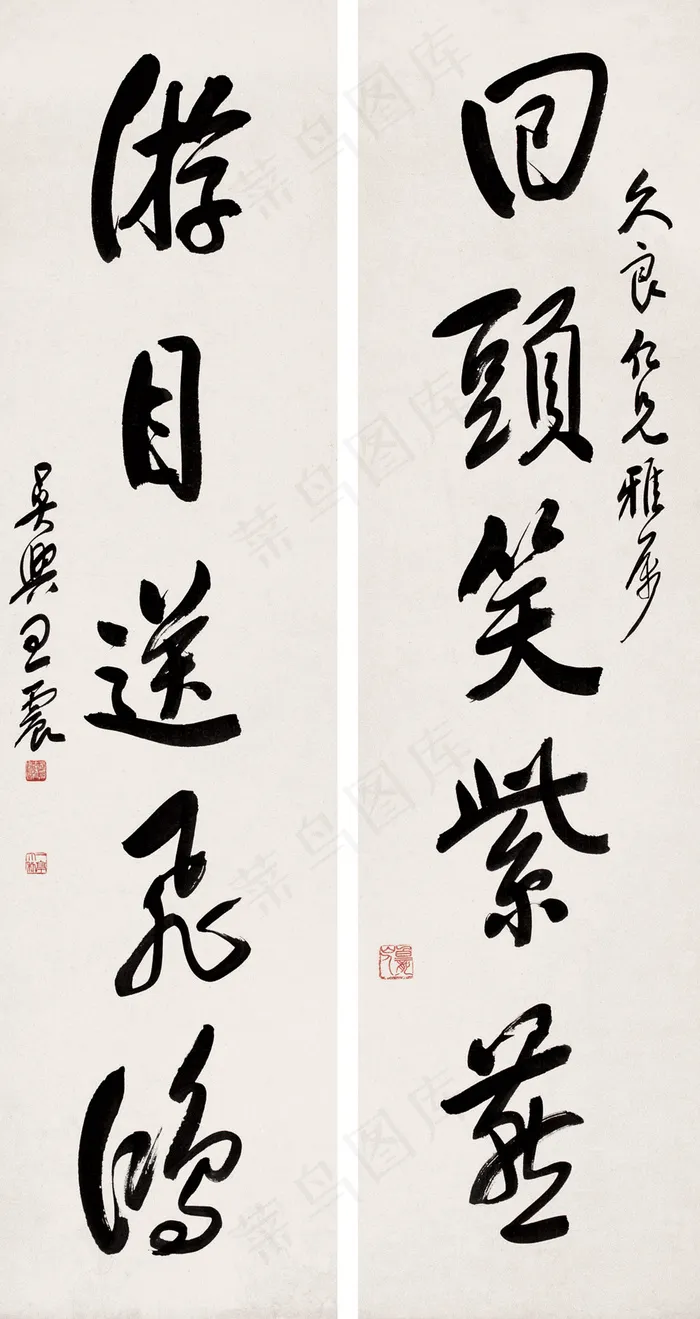 久良仁兄雅属
回頭笑紫燕
游目送飛鴻
吳興王震
菜鸟图库